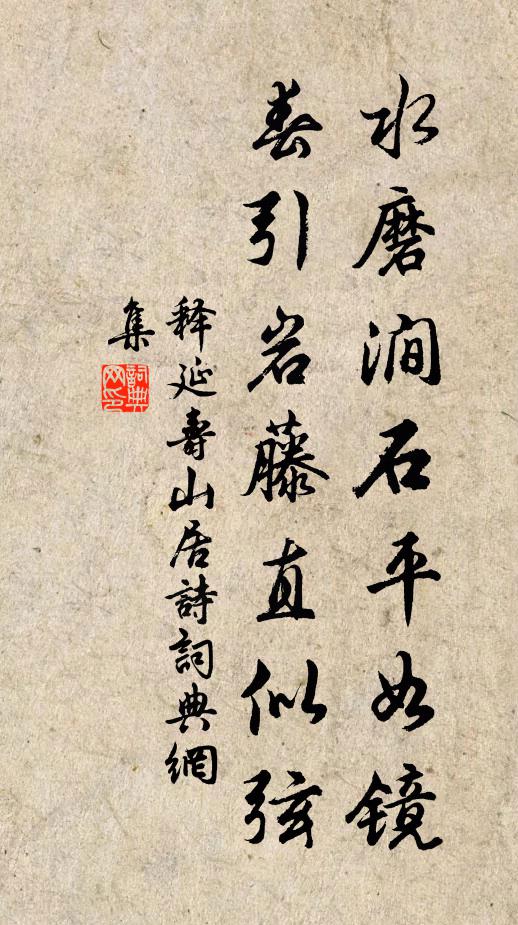 水磨涧石平如镜
春引岩藤直似弦
释延壽山居詩詞典網
集
詞典
网印